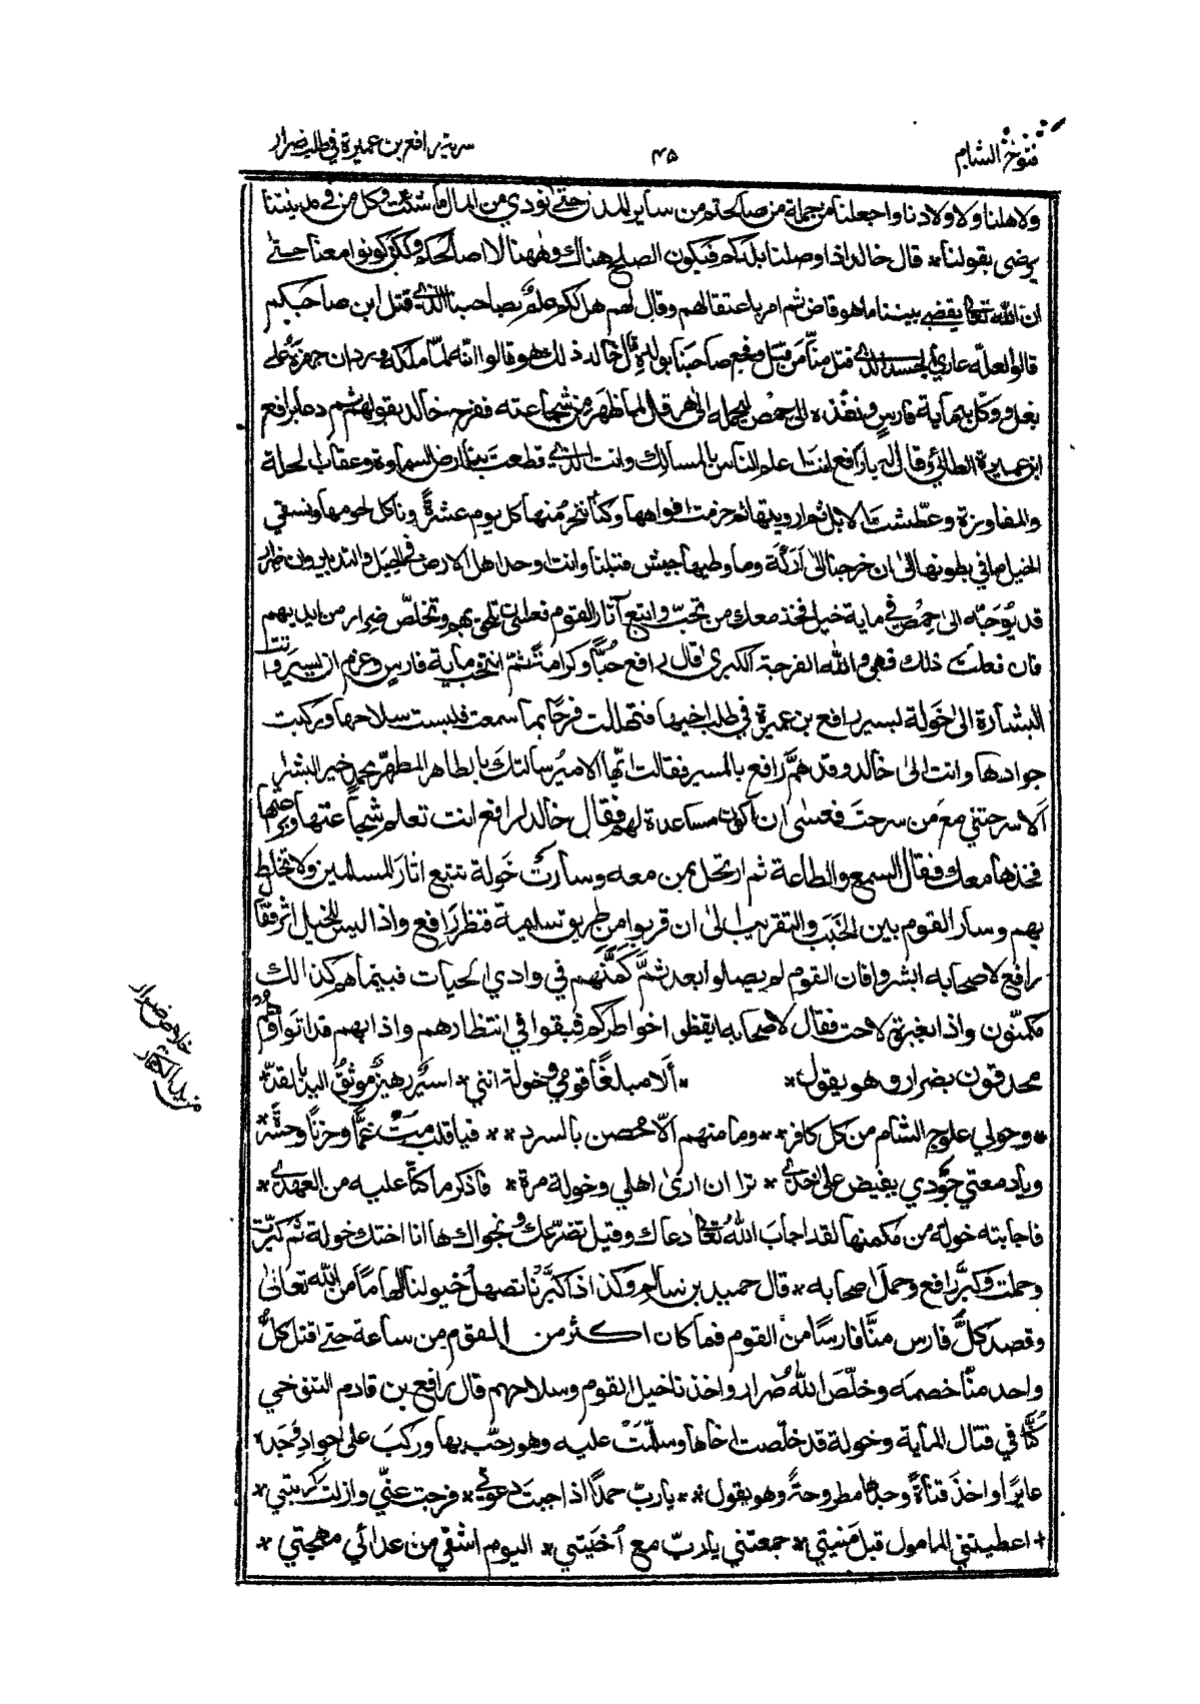 فتوح الشام
٤٥
سرية رافع بن عميرة في طلب ضرار
ولاهلنا ولاولادنا واجعلنا من جملة من صالحتم من ساير المدن حتى نودي من المال ما شئت وكل من في مدينتنا
يرضى بقولنا * قال خالد اذا وصلنا بلدكم فيكون الصلح هناك وههنا لا اصالحكم ولكن كونوا معنا حتى
ان الله تعالى يقضي بيننا ما هو قاض ثم امر باعتقالهم وقال لهم هل لكم علم بصاحبنا الذي قتل ابن صاحبكم
قالوا لعله عاري الجسد الذي قتل منا من قتل وفجع صاحبنا بولده قال خالد ذلك هو قالوا انه لما ملكه وردان جهزه على
بغل ووكل به ماية فارس ونفذه الى حمص ليحمله الى هرقل لما ظهر من شجاعته ففرح خالد بقولهم ثم دعا برافع
ابن عميرة الطائي وقال له يا رافع انت اعلم الناس بالمسالك وانت الذي قطعت بنا ارض السماوة وعقاب لحلة
والمفاوزة وعطشت الابل ثم ارويتها ثم حزمت افواهها وكنا ننحر منها كل يوم عشرة وناكل لحومها ونسقي
الخيل ما في بطونها الى ان خرجنا الى ارَكَة وما وطيها جيش قبلنا وانت وحد اهل الارض في الحيل والتدبير وان ضرار
قد يُوَجّه الى حمص في ماية خيل فخذ معك من تحب واتبع آثار القوم فعلى ان تلحق بهم وتخلص ضرار من ايديهم
فان فعلت ذلك فهي والله الفرحة الكبرى قال رافع حبا وكرامة ثم انتخب ماية فارس وعزم ان يسير واتت
البشارة الى خولة بمسير رافع بن عميرة في طلب اخيها فتهللت فرحا بما سمعت فلبست سلاحها وركبت
جوادها واتت الى خالد وقد همَّ رافع بالمسير فقالت ايها الامير سالتك بالطاهر المطهر محمد خير البشر
اَلا سرحتني مع من سرحت فعسى ان اكون مساعدة لهم فقال خالد لرافع انت تعلم شجاعتها وبراعتها
فخذها معك فقال السمع والطاعة ثم ارتحل بمن معه وسارت خولة تتبع اثار المسلمين ولا تختلط
بهم وسار القوم بين الخبب والتقريب الى ان قربوا من طريق سلمية فنظر رافع واذا ليس للخيل اثر فقال
رافع لاصحابه ابشروا فان القوم لم يصلوا بعد ثمَّ كَمَّنهم في وادي الحيات فبينما هم كذالك
مكمنون واذا بغبرة لاحت فقال لاصحابه ايقظوا خواطركم فبقوا في انتظارهم واذا بهم قد اتوا وهم
محدقون بضرار وهو يقول * * اَلا مبلغًا قومي وخولة انني * اسيرٌ رهينٌ موثقُ اليد بالقدّ *
* وحولي علوج الشام من كل كافر * * وما منهم الّا محصن بالسرد * * فيا قلب مت غمًّا وحزنًا وحسرة *
ويا دمعتي جودي بفيض على خدي * ترا ان ارى اهلي وخولة مرة * فاذكر ما كنا عليه من العهدي *
فاجابته خولة من مكمنها لقد اجابَ اللهُ تعالى دعاك وقبل تضرعك ونجواك ها انا اختك خولة ثم كبّرت
وحملت وكبّر رافع وحملَ اصحابه * قال حميد بن سالم وكنا اذا كبّرنا تصهل خيولنا الهامًا من الله تعالى
وقصد كلُّ فارس منّا فارسًا من القوم فما كان اكثر من المقوم من ساعة حتى قتل كلُّ
واحد منّا خصمه وخلّصَ اللهُ ضرار واخذنا خيل القوم وسلاحهم قال رافع بن قادم التنوخي
كُنَّا في قتال الماية وخولة قد خلّصت اخاها وسلّمَت عليه وهو رحّب بها وركبَ على جوادٍ وجد
عايرًا واخذَ قناةً وجدها مطروحةً وهو يقول * * يا ربّ حمدًا اذ اجبت دعوتي * فرجت عنّي وازلت كربتي *
* اعطيتني المامول قبل منيتي * جمعتني يا ربّ مع اُختيتي * اليوم اشفي من عدائي مهجتي *
خلاص ضرار
من يد الكفار